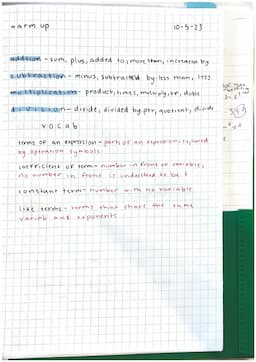 warm up 10-5-23
addtion - sum, plus, added to, more than, increased by
subtraction - minus, subtracted by, less than, less
multiplication - product, times, multiply, of, doble
division - divide, divided by, per, quotient, divide
vocab
terms of an expression - parts of an expression
by operation symbols.
coefficient of term - number in front of variable,
no number in front is understood to be 1
constant term - number with no variable
like terms - terms that share the same
variable and exponents